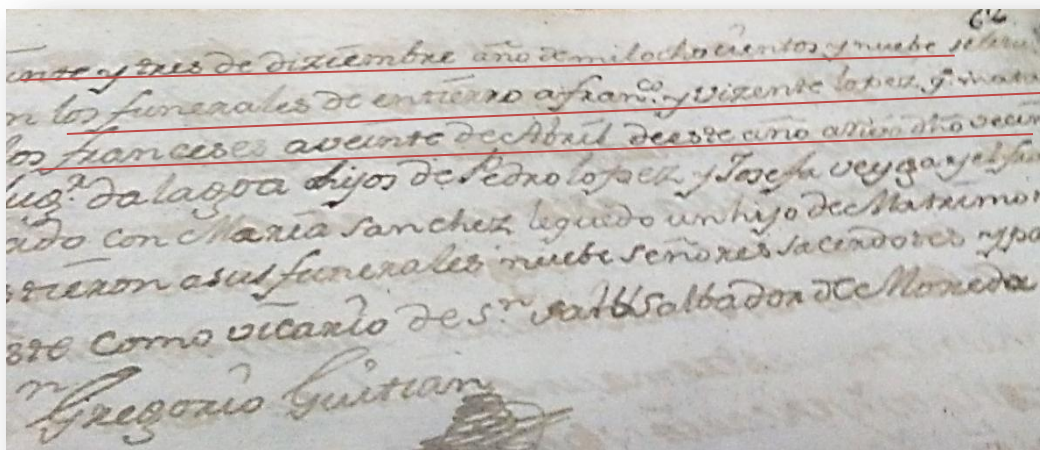 62
inte y tres de diziembre año de mil ochocientos y nuebe se
n los funerales de entierro a fran.co y Vizente lopez q.e mata
los franceses a veinte de Abril deeste año
lug.r da lagoa hijos de Pedro lopez y Josefa veyga y el fran
ado con Maria Sanchez le quedo un hijo de Matrimon
stieron a sus funerales nuebe señores sacerdotes y pa
ste como vicario de S.n Salbador de Moreda
n Gregorio Guitian